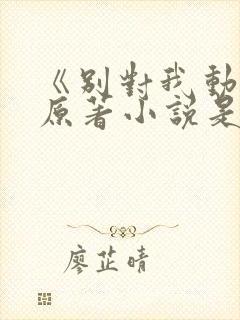 《別對我動
原著小說是
廖芷晴